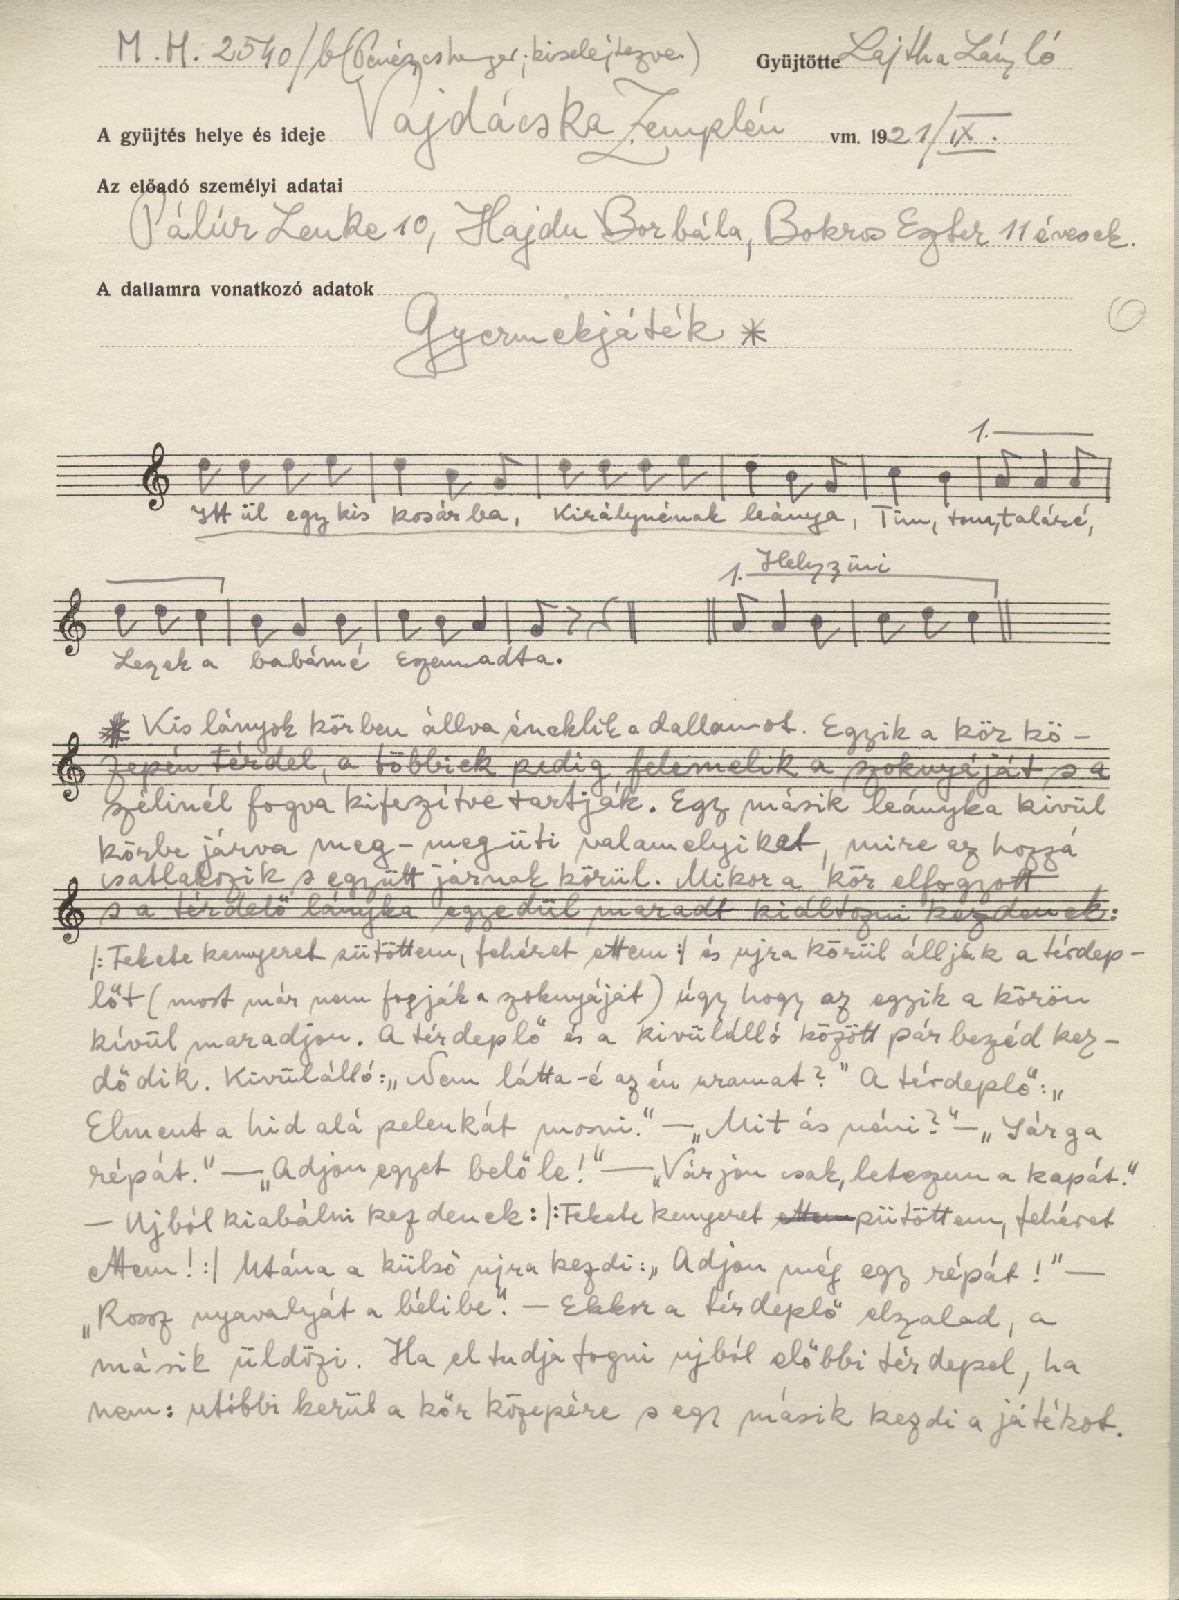 M. H. 2540/b (Pénézes henger; kiselejtezve.) Gyüjtötte Lajtha László
A gyüjtés helye és ideje Vajdácska Zemplén vm. 1921/IX.
Az előadó személyi adatai
Pálúr Lenke 10, Hajdu Borbála, Bokros Eszter 11 évesek.
A dallamra vonatkozó adatok
Gyermekjáték *
1.
Itt ül egy kis kosárba, Királynénak leánya, Tím, tom, taláré,
1. Helyzüni
Lezek a babámé Ezemadta.
* Kis lányok körben állva éneklik a dallamot. Egyik a kör kö-
zepén térdel, a többiek pedig felemelik a szoknyáját s a
szélinél fogva kifeszítve tartják. Egy másik leányka kivül
körbe járva meg-megüti valamelyiket, mire az hozzá
csatlakozik s együtt járnak körül. Mikor a kör elfogyott
s a térdelő lányka egyedül maradt kiáltozni kezdenek:
|: Fekete kenyeret sütöttem, fehéret ettem :| és ujra körül állják a térdep-
lőt (most már nem fogják a szoknyáját) úgy hogy az egyik a körön
kívül maradjon. A térdeplő és a kivülálló között párbeszéd kez-
dődik. Kivülálló: „Nem látta-é az én uramat?" A térdeplő: „
Elment a hid alá pelenkát mosni." — „Mit ás néni?" — „Sárga
répát." — „Adjon egyet belőle!" — „Várjon csak, leteszem a kapát."
— Ujból kiabálni kezdenek: |: Fekete kenyeret ettem sütöttem, fehéret
ettem! :| Utána a külső ujra kezdi: „Adjon még egy répát!" —
„Rossz nyavalyát a bélibe". — Ekkor a térdeplő elszalad, a
másik üldözi. Ha el tudja fogni ujból előbbi térdepel, ha
nem: utóbbi kerül a kör közepére s egy másik kezdi a játékot.